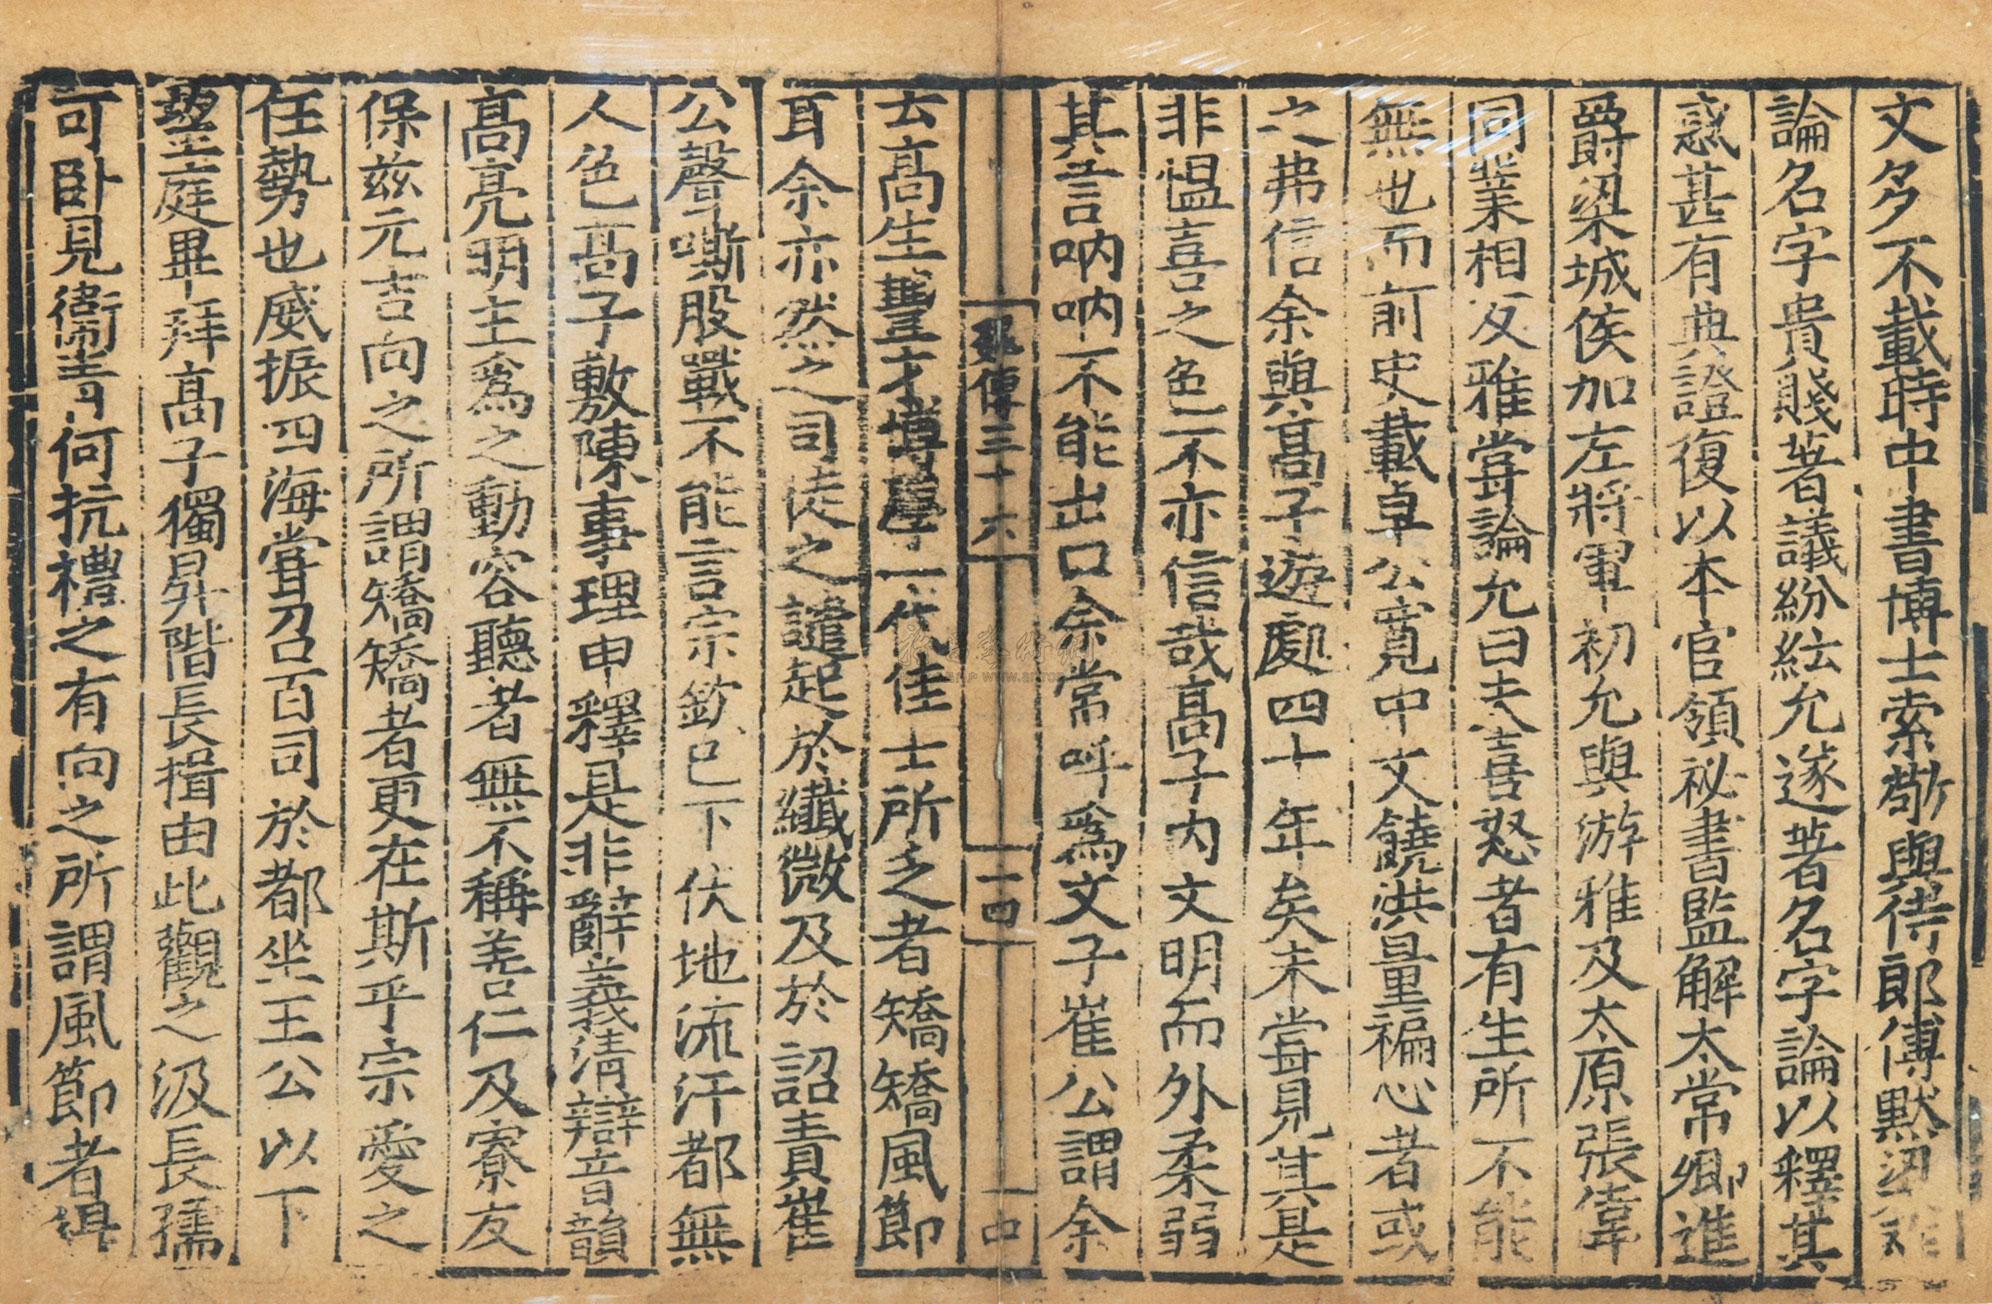 文多不載時中書博士索敞與侍郎傅默梁祚
論名字貴賤著議紛紜允遂著名字論以釋其
惑甚有典證復以本官領祕書監解太常卿進
爵梁城侯加左將軍初允與游雅及太原張偉
同業相友雅嘗論允曰夫喜怒者有生所不能
無也而前史載卓公寬中文饒洪量褊心者或
之弗信余與高子遊處四十年矣未嘗見其是
非慍喜之色不亦信哉高子內文明而外柔弱
其言呐呐不能出口余常呼為文子崔公謂余
魏傳三十六
十四
云高生豐才博學一代佳士所乏者矯矯風節
耳余亦然之司徒之譴起於纖微及於詔責崔
公聲嘶股戰不能言宗欽已下伏地流汗都無
人色高子敷陳事理申釋是非辭義清辯音韻
高亮明主為之動容聽者無不稱善仁及寮友
保茲元吉向之所謂矯矯者更在斯乎宗愛之
任勢也威振四海嘗召百司於都坐王公以下
望庭畢拜高子獨昇階長揖由此觀之汲長孺
可臥見衞青何抗禮之有向之所謂風節者得